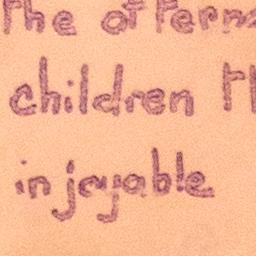 the aftern
children th
injoyable